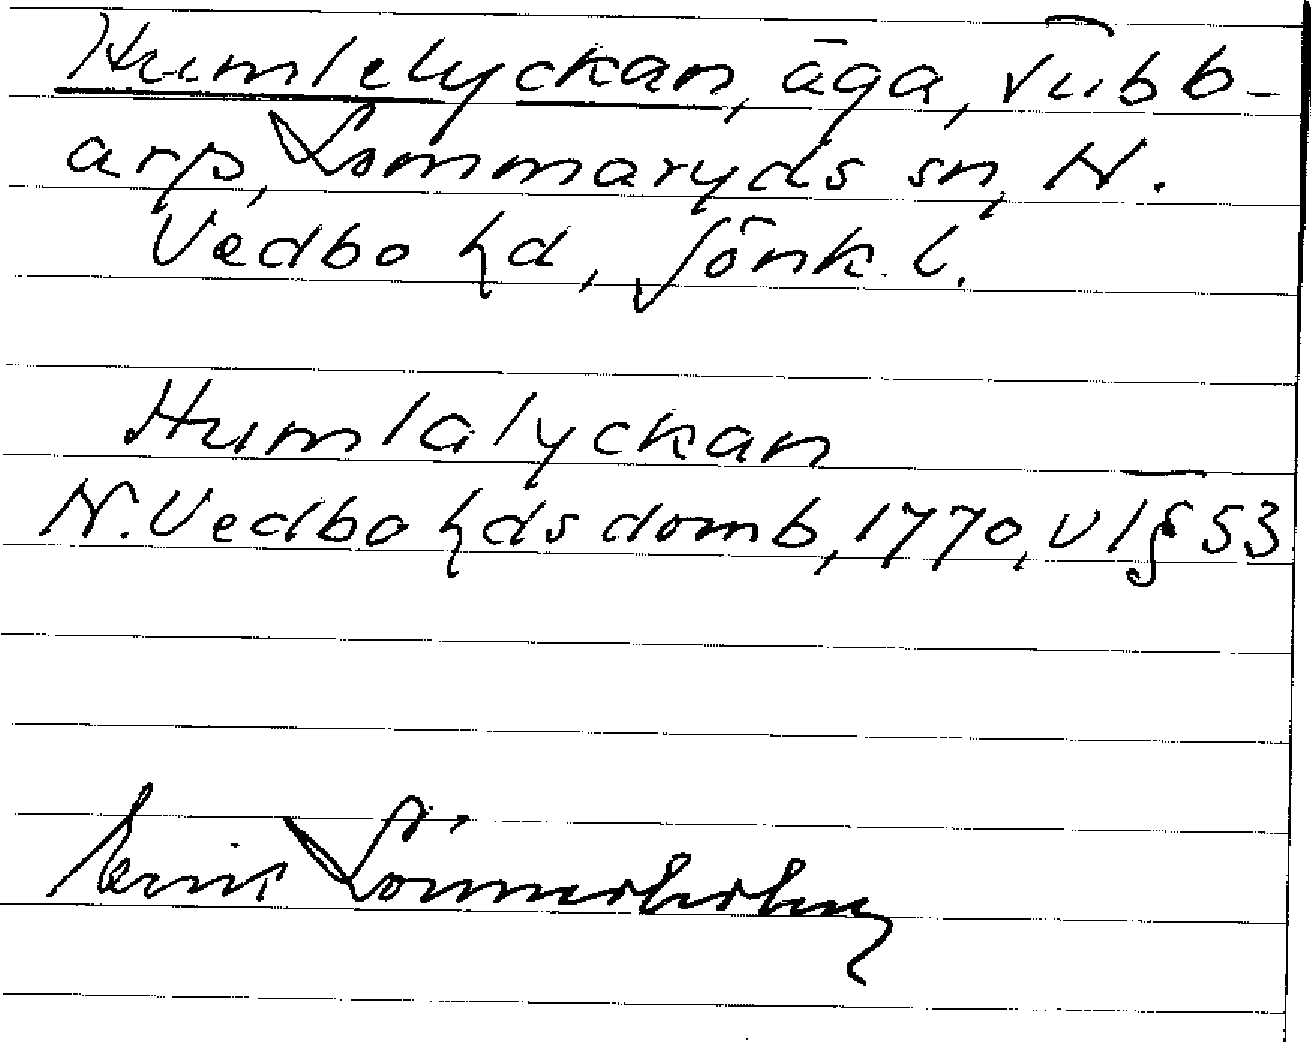 Humlelyckan, äga, Tubb-
arp, Lommaryds sn, N.
Vedbo hd, Jönk. l.
Humlalyckan
N. Vedbo hds domb, 1770, vt § 53
Lönnerholm